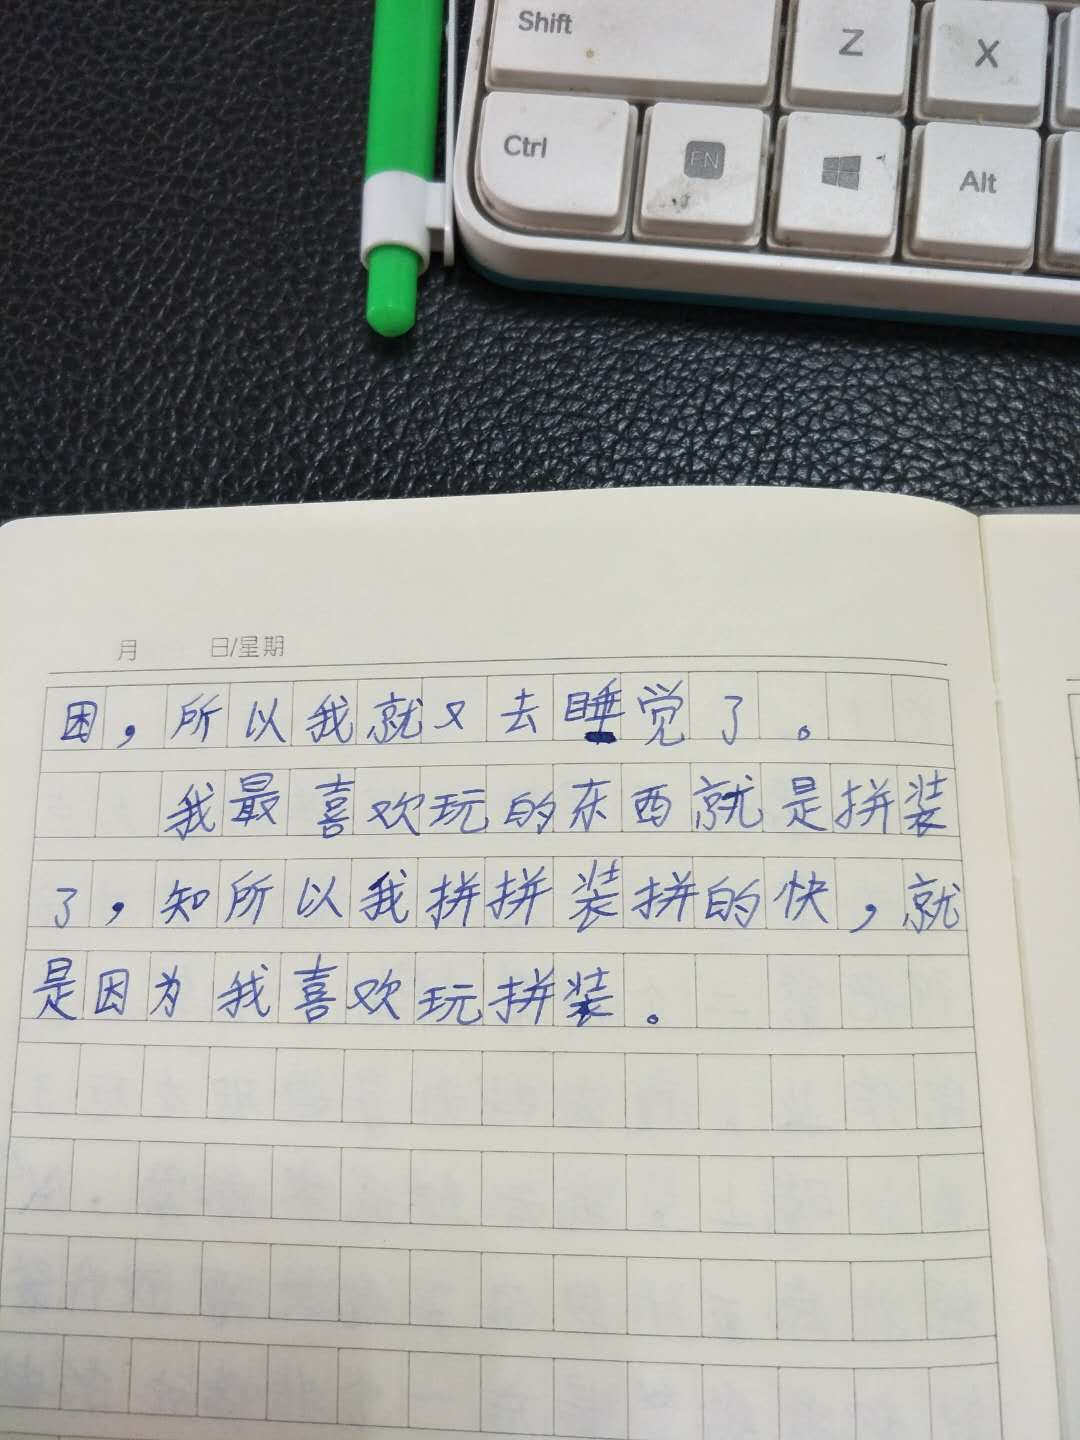 Shift
Z
X
Ctrl
FN
Alt
月 日/星期
困，所以我就又去睡觉了。
我最喜欢玩的东西就是拼装
了，知所以我拼拼装拼的快，就
是因为我喜欢玩拼装。